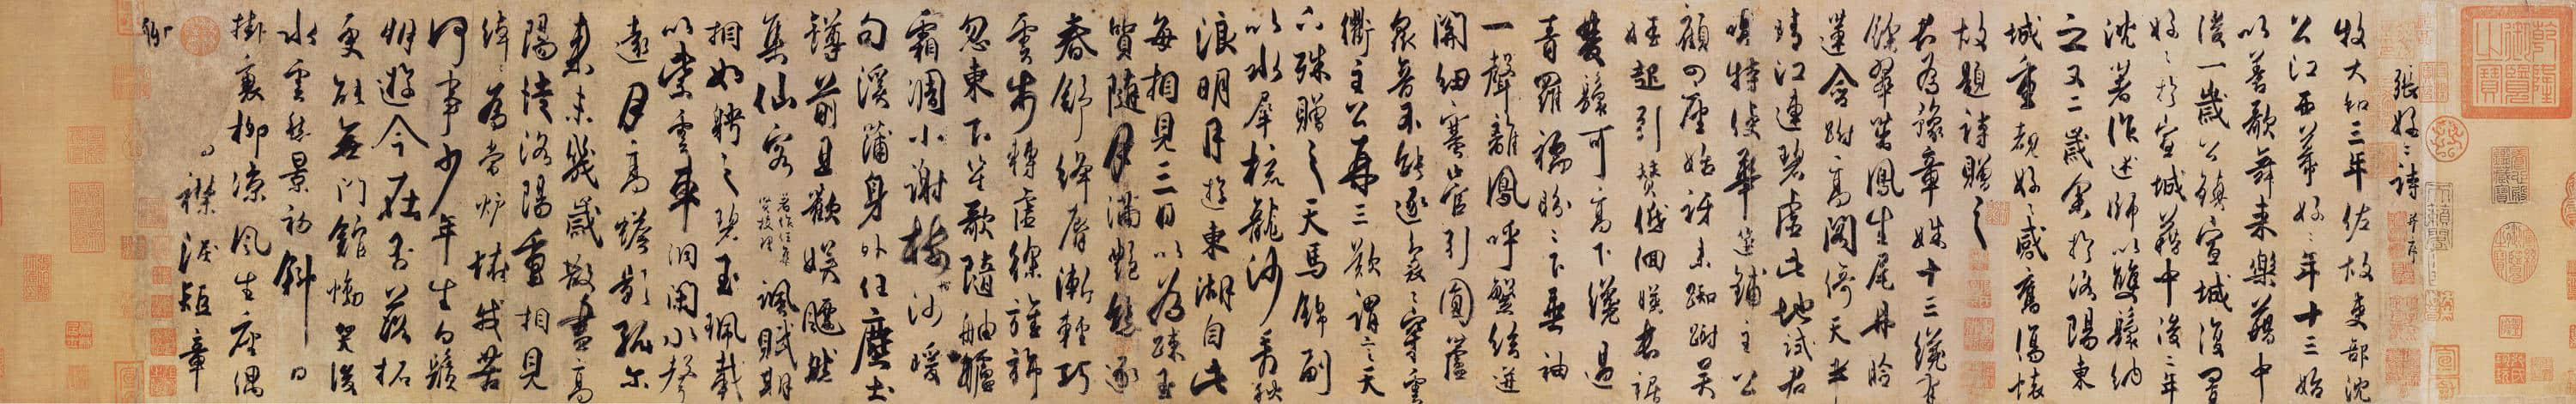 張好好詩并序
牧大和三年佐故吏部沈
公江西幕好好年十三始
以善歌舞来樂籍中
後一歲公鎮宣城復置
好好於宣城籍中後二年
沈著作述師以雙鬟納
之又二歲余於洛陽東
城重覩好好感舊傷懷
故題詩贈之
君為豫章姝十三纔有
餘翠茁鳳生尾丹臉
蓮含跗高閣倚天半
晴江連碧虛此地試君
唱特使華筵鋪主公
顧四座始訝来踟躕吳
娃起引贊低佪映長裾
雙鬟可高下纔過
青羅襦盼盼下垂袖
一聲離鳳呼繁絃迸
關紐塞管引圓蘆
衆音不能逐裊裊穿雲
衢主公再三歎謂言天
下殊贈之天馬錦副
以水犀梳龍沙看秋
浪明月遊東湖自此
每相見三日以為疎玉
質隨月滿艷態逐
春舒絳脣漸輕巧
雲步轉虛徐旌旆
忽東下笙歌隨舳艫
霜凋小謝樓樹沙暖
句溪蒲身外任塵土
罇前且歡娛飄然
集仙客著作任集賢校理諷賦期
相如聘之碧玉珮載
以紫雲車洞閑水聲
遠月高蟾影孤尔
来未幾歲散盡高
陽徒洛陽重相見
綽綽為當爐怪我苦
何事少年生白鬚
朋遊今在否落拓
更能無門館慟哭後
水雲愁景初斜日
掛衰柳涼風生座隅
襟淚短章
聊